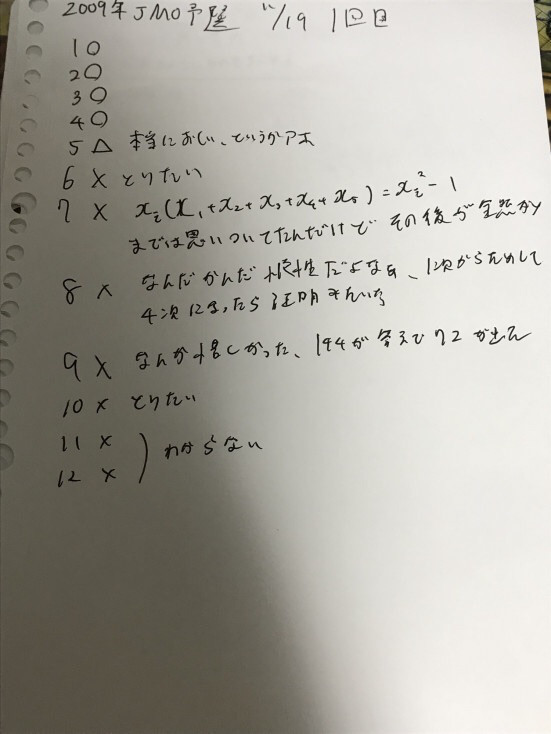 2009年 JMO予選 11/19 1回目
1 ○
2 ○
3 ○
4 ○
5 △ 本当におしい、というかアホ
6 × とりたい
7 × xi(x1+x2+x3+x4+x5)=xi²-1
までは思いついてたんだけど その後が全然
8 × なんだかんだ 根性だよなぁ、1次からためして
4次になったら証明
9 × なんか惜しかった、144が答えで72が出た
10 × とりたい
11 ×
12 ×
わからない